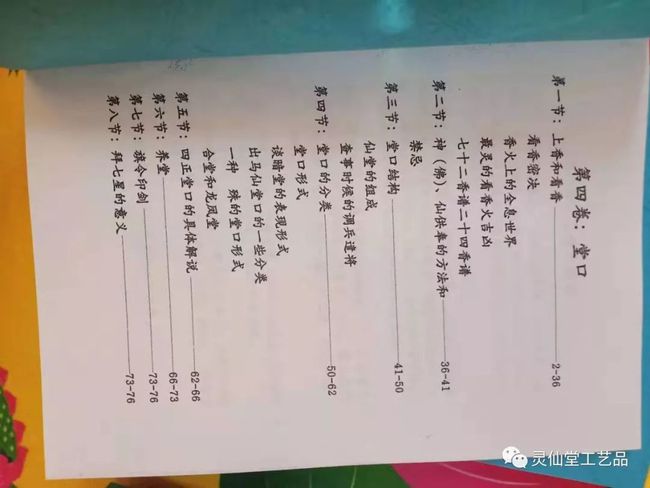 第四卷：堂口
第一节：上香和看香 2-36
看香密决
香火上的全息世界
最灵的看香火吉凶
七十二香谱二十四香谱
第二节：神（佛）、仙供奉的方法和 36-41
禁忌
第三节：堂口结构 41-50
仙堂的组成
查事时候的调兵遣将
第四节：堂口的分类 50-62
堂口形式
谈暗堂的表现形式
出马仙堂口的一些分类
一种 殊的堂口形式
合堂和龙凤堂
第五节：四正堂口的具体解说 62-66
第六节：养堂 66-73
第七节：旗令印剑 73-76
第八节：拜七星的意义 73-76
灵仙堂工艺品